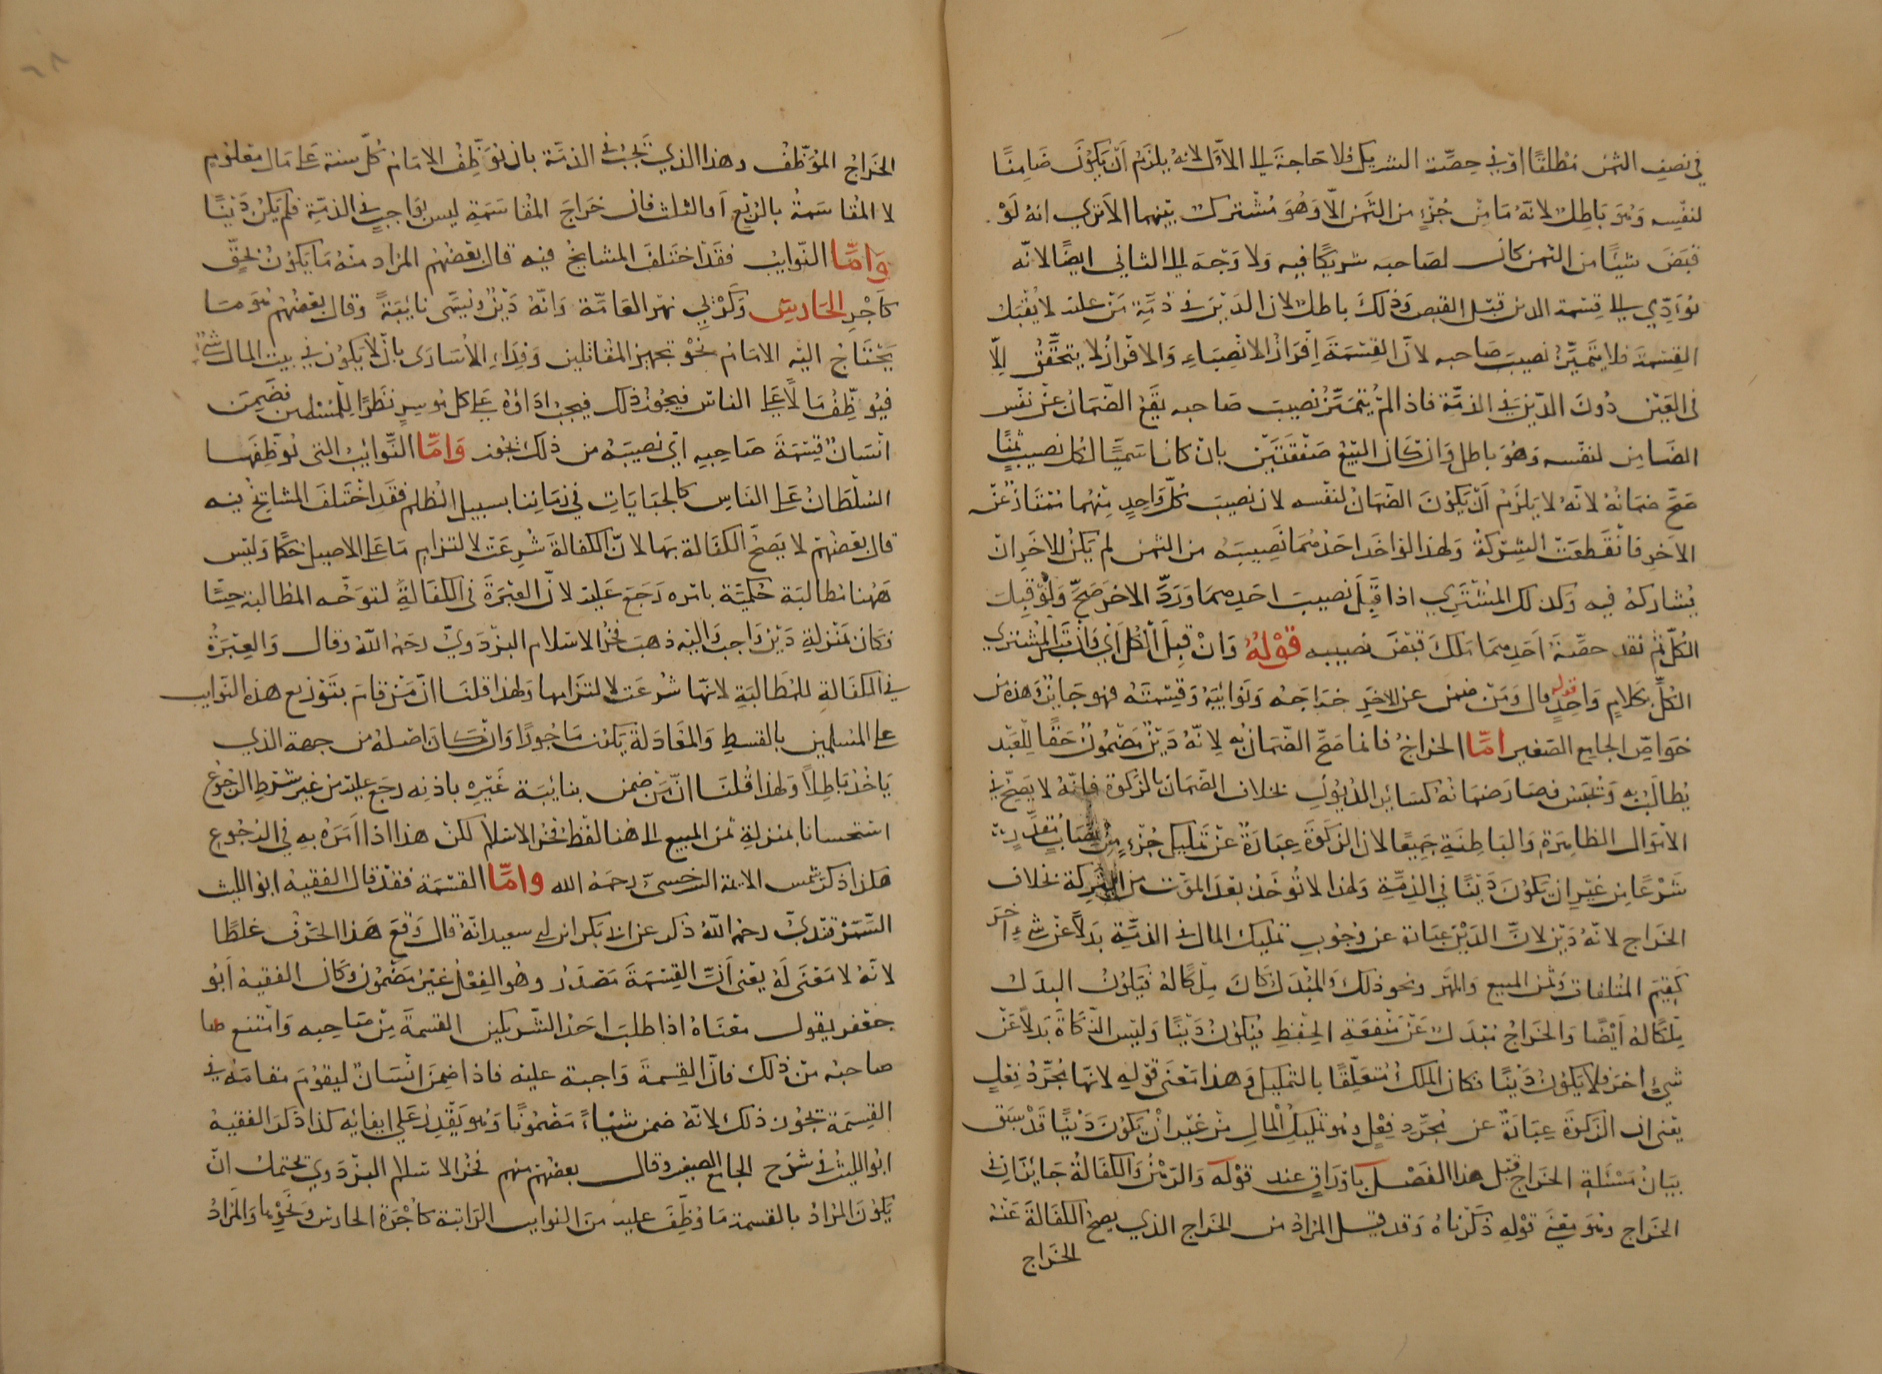 في نصف الثمن مطلقًا او في حصّة الشريك فلا حاجة الى الاوّل لانه يلزم اَن يكون ضامنًا
لنفسه وهو باطل لانّه ما من جُزءٍ من الثمن الّا وهو مشترك بينهما الا ترى انه لوْ
قبض شيئًا من الثمن كان لصاحبه شريكًا فيه ولا وجه الى الثاني ايضًا لانّه
يؤدّي الى قسمة الدين قبل القبض وذلك باطل لان الدين في ذمّة من عليه لا يقبل
القسمة فلا يتميّز نصيب صاحبه لانّ القسمة افراز الانصباء والافراز لا يتحقّق الّا
في العين دون الدّين في الذمّة فاذا لم يتميّز نصيب صاحبه يقع الضمان عن نفس
الضامن لنفسه وهو باطل وان كان البيع صفقتين بان كانا سمّيا لكل نصيب ثمنًا
صحّ ضمانه لانّه لا يلزم اَنْ يكون الضمان لنفسه لان نصيب كلّ واحدٍ منهما ممتازٌ عن
الاخر فانقطعت الشركة ولهذا لو اخذ احدهما نصيبه من الثمن لم يكن للاخر ان
يشاركه فيه وكذلك المشتري اذا قبل نصيب احدهما وردّ الاخر صحّ ولو قبل
الكلّ ثم نقد حصّة احدهما ملك قبض نصيبه قوله وان قبل الكل اي قبل المشتري
الكلّ بكلامٍ واحدٍ قوله قال ومن ضمن عن الاخر خراجه ونوائبه وقسمته فهو جائز وهذه من
خواصّ الجامع الصغير امّا الخراج فانما صحّ الضمان به لانّه دين مضمون حقًا للعبد
يطالب به ويحبس فصار ضمانه كسائر الديون بخلاف الضمان بالزكوة فانّه لا يصحّ في
الاموال الظاهرة والباطنة جميعًا لان الزكوة عبارة عن تمليك جزءٍ من نصاب مقدّر
شرعًا من غير ان يكون دينًا في الذمّة ولهذا لا تؤخذ بعد الموت من التركة بخلاف
الخراج لانّه دين لانّ الدين عبارة عن وجوب تمليك المال في الذمّة بدلاً عن شيءٍ اخر
كقيم المتلفات وثمن المبيع والمهر ونحو ذلك والمبدل كان ملكًا له فيكون البدل
ملكًا له ايضًا والخراج مبدل عن منفعة الحفظ فيكون دينًا وليس الزكاة بدلًا عن
شيءٍ اخر فلا يكون دينًا فكان الملك متعلّقًا بالتمليك وهذا معنى قوله لانها مجرّد فعلٍ
يعني ان الزكوة عبارة عن مجرّد فعلٍ وهو تمليك المال من غير ان يكون دينًا قد سبق
بيان مسئلة الخراج قبل هذا الفصل باوراقٍ عند قوله والرهن والكفالة جائزان في
الخراج وهو معنى قوله ذكرناه وقد قيل المراد من الخراج الذي يصح الكفالة عنه
الخراج
الخراج المؤظّف وهذا الذي يجب في الذمّة بان يوظّف الامام كلّ سنة على مال معلوم
لا المقاسمة بالربع او الثلث فان خراج المقاسمة ليس بواجبٍ في الذمّة فلم يكن دينًا
وامّا النّوايب فقد اختلف المشايخ فيه قال بعضهم المراد منه ما يكون بحقّ
كاجر الحارس وكري نهر العامّة وانّه دين ويسمّى نايبةً وقال بعضهم هو ما
يحتاج اليه الامام نحو تجهيز المقاتلين وفداء الاسارى بان لا يكون في بيت المال شيءٌ
فيوظّف مالًا على الناس فيجوز ذلك فيجب اداؤه على كل موسرٍ نظرًا للمسلمين فضمن
انسان قسمة صاحبه اي نصيبه من ذلك يجوز وامّا النّوايب التي توظفها
السلطان على الناس كالجبايات في زماننا بسبيل الظلم فقد اختلف المشايخ فيه
قال بعضهم لا يصحّ الكفالة بها لانّ الكفالة شرعت لالتزام ما على الاصيل حكمًا وليس
ههنا مطالبة حكميّة رجع عليه لانّ العبرة في الكفالةِ لتوجّه المطالبة حسًّا
وكان بمنزلة دين واجب واليه ذهب فخر الاسلام البزدويّ رحمه اللّه وقال والعبرة
في الكفالة للمطالبة لانّها شرعت لالتزامها ولهذا قلنا انّ من قام بتوزيع هذه النوايب
على المسلمين بالقسط والمعادلة يكون ماجورًا وان كان اصله من جهة الذي
ياخذ باطلاً ولهذا قلنا انّ من ضمن بنائبة غيره باذنه رجع عليه من غير شرط الرجوع
استحسانا بمنزلة ثمن المبيع الى هنا لفظ فخر الاسلام لكن هذا اذا امره به في الرجوع
هكذا ذكر شمس الايمة السّرخسيّ رحمه الله وامّا القسمة فقد قال الفقيه ابو الليث
السّمرقنديّ رحمه اللّه ذكر عن ابي بكر ابن ابي سعيد انّه قال وقع هذا الحرف غلطًا
لانّه لا معنى له يعني اَنّ القسمة مصدر وهو الفعل غير مضمون وكان الفقيه اَبو
جعفر يقول معناه اذا طلب احد الشّريكين القسمة من صاحبه وامتنع
صاحبه من ذلك فانّ القسمة واجبة عليه فاذا ضمن انسان ليقوم مقامه في
القسمة يجوز ذلك لانّه ضمن شيئاً مضمونًا وهو يقدر على ايفائه كذا ذكر الفقيه
ابو الليث في شرح الجامع الصغير وقال بعضهم منهم فخر الاسلام البزدوي يحتمل انّ
يكون المراد بالقسمة ما وظّف عليه من النوايب الراتبة كاجرة الحارس ونحوها والمراد